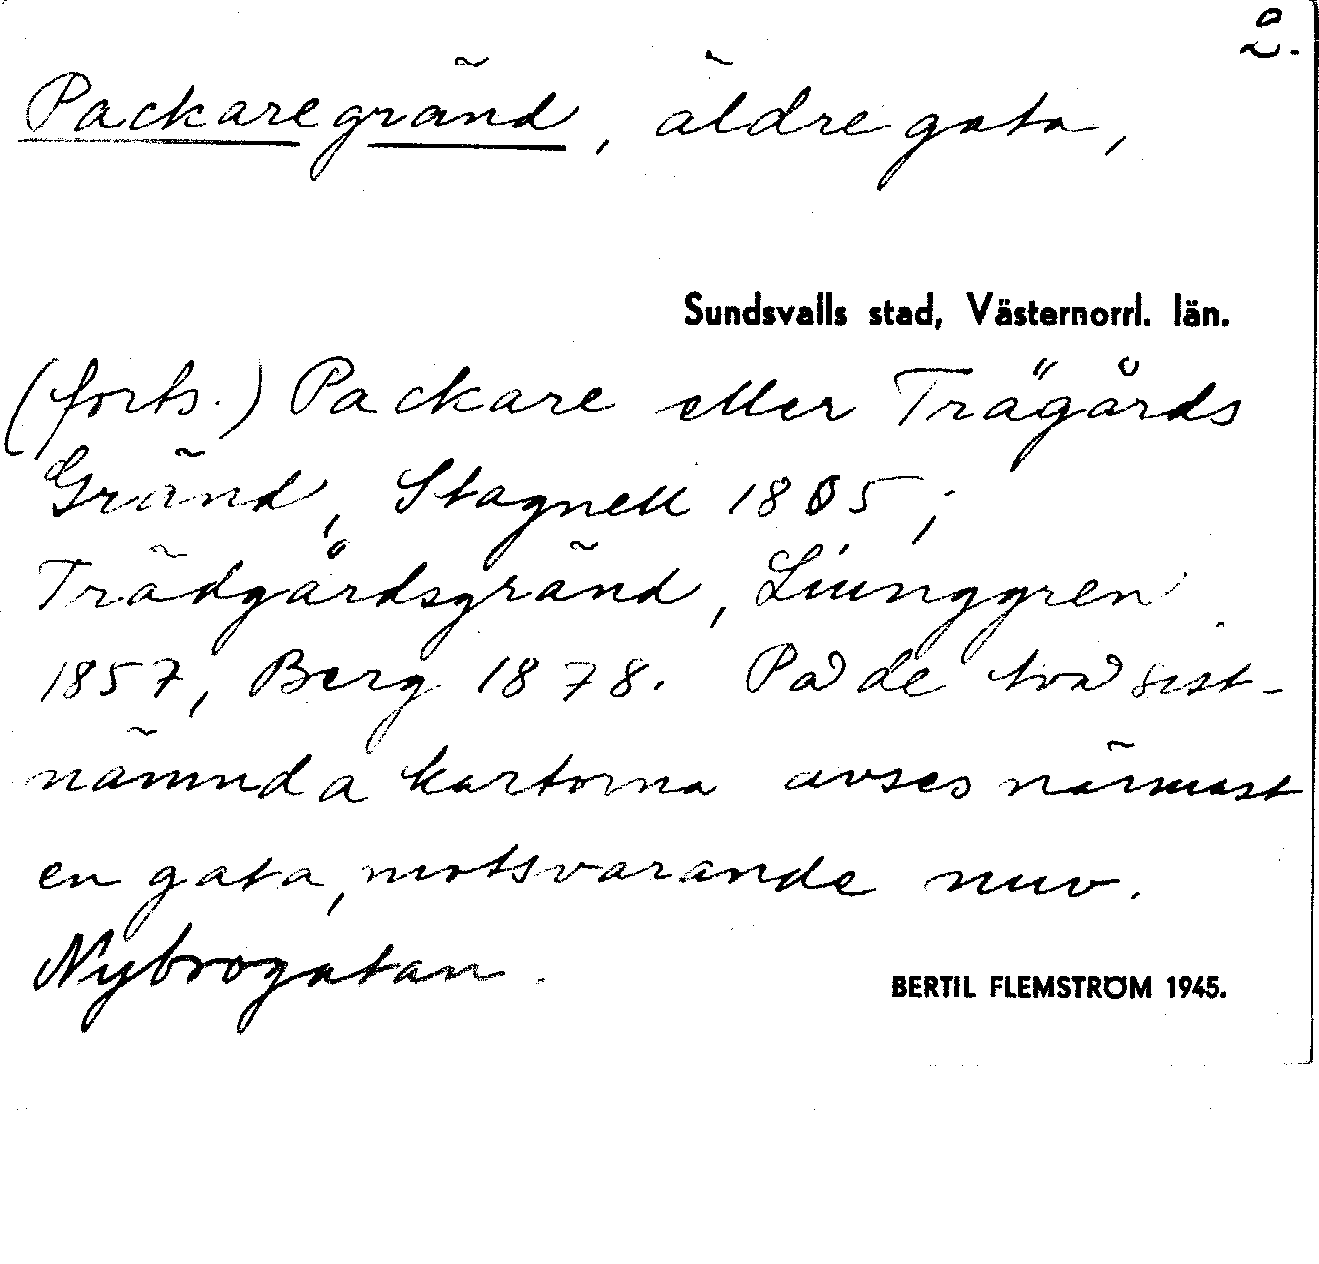 2.
Packaregränd, äldre gata,
Sundsvalls stad, Västernorrl. län.
(forts.) Packare eller Trägårds
Gränd, Stagnell 1805;
Trädgårdsgränd, Liunggren
1857, Berg 1878. På de två sist-
nämnda kartorna avses närmast
en gata, motsvarande nuv.
Nybrogatan.
BERTIL FLEMSTRÖM 1945.